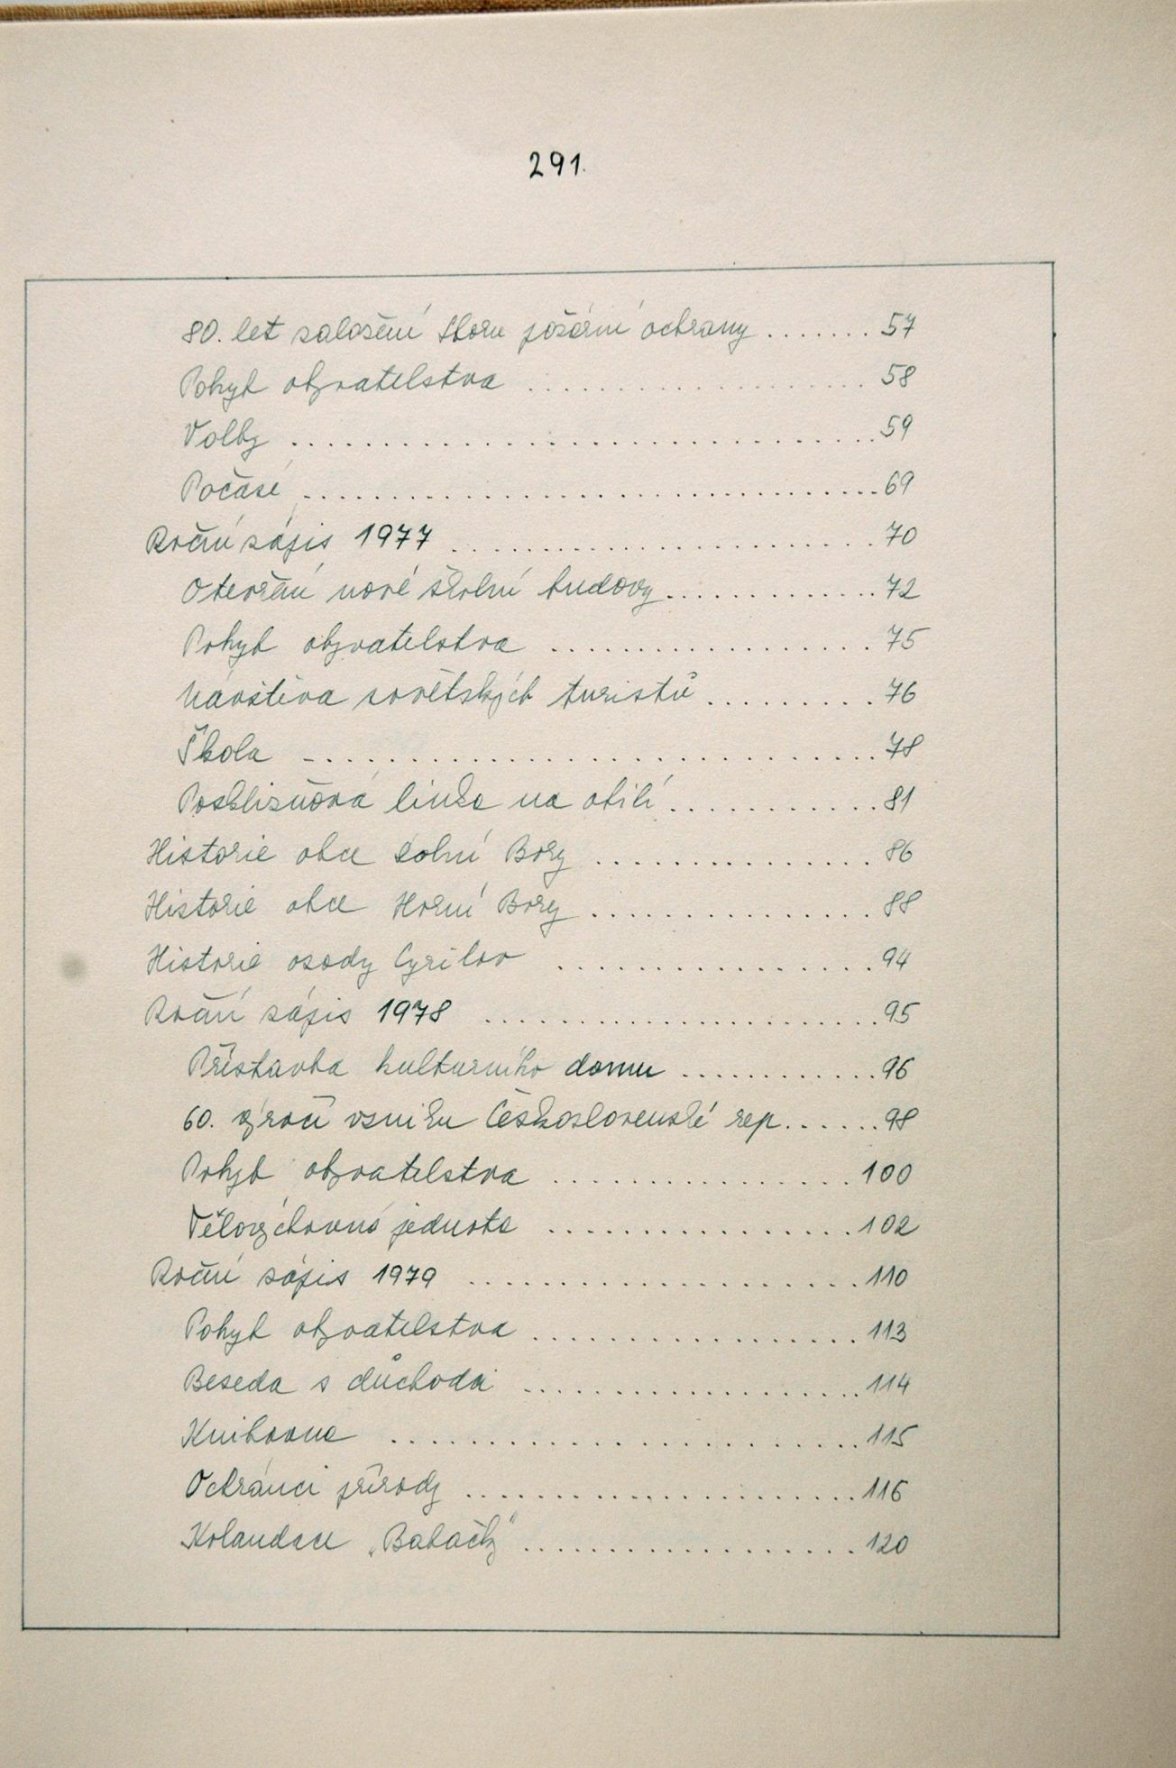 291.
80. let založení Sboru požární ochrany ....... 57
Pohyb obyvatelstva ................... 58
Volby .............................. 59
Počasí .............................. 69
Roční zápis 1977 ...................... 70
Otevření nové školní budovy ............. 72
Pohyb obyvatelstva ................. 75
Návštěva sovětských turistů ......... 76
Škola .............................. 78
Posklizňová linka na obilí ........... 81
Historie obce Dolní Bory ............... 86
Historie obce Horní Bory ............... 88
Historie osady Cyrilov ................ 94
Roční zápis 1978 ..................... 95
Přístavba kulturního domu ............ 96
60. výročí vzniku Československé rep. ..... 98
Pohyb obyvatelstva ................ 100
Tělovýchovná jednota ................ 102
Roční zápis 1979 .................... 110
Pohyb obyvatelstva ................. 113
Beseda s důchodci .................. 114
Knihovna ......................... 115
Ochránci přírody ..................... 116
Kolandace „Babačky" .................. 120